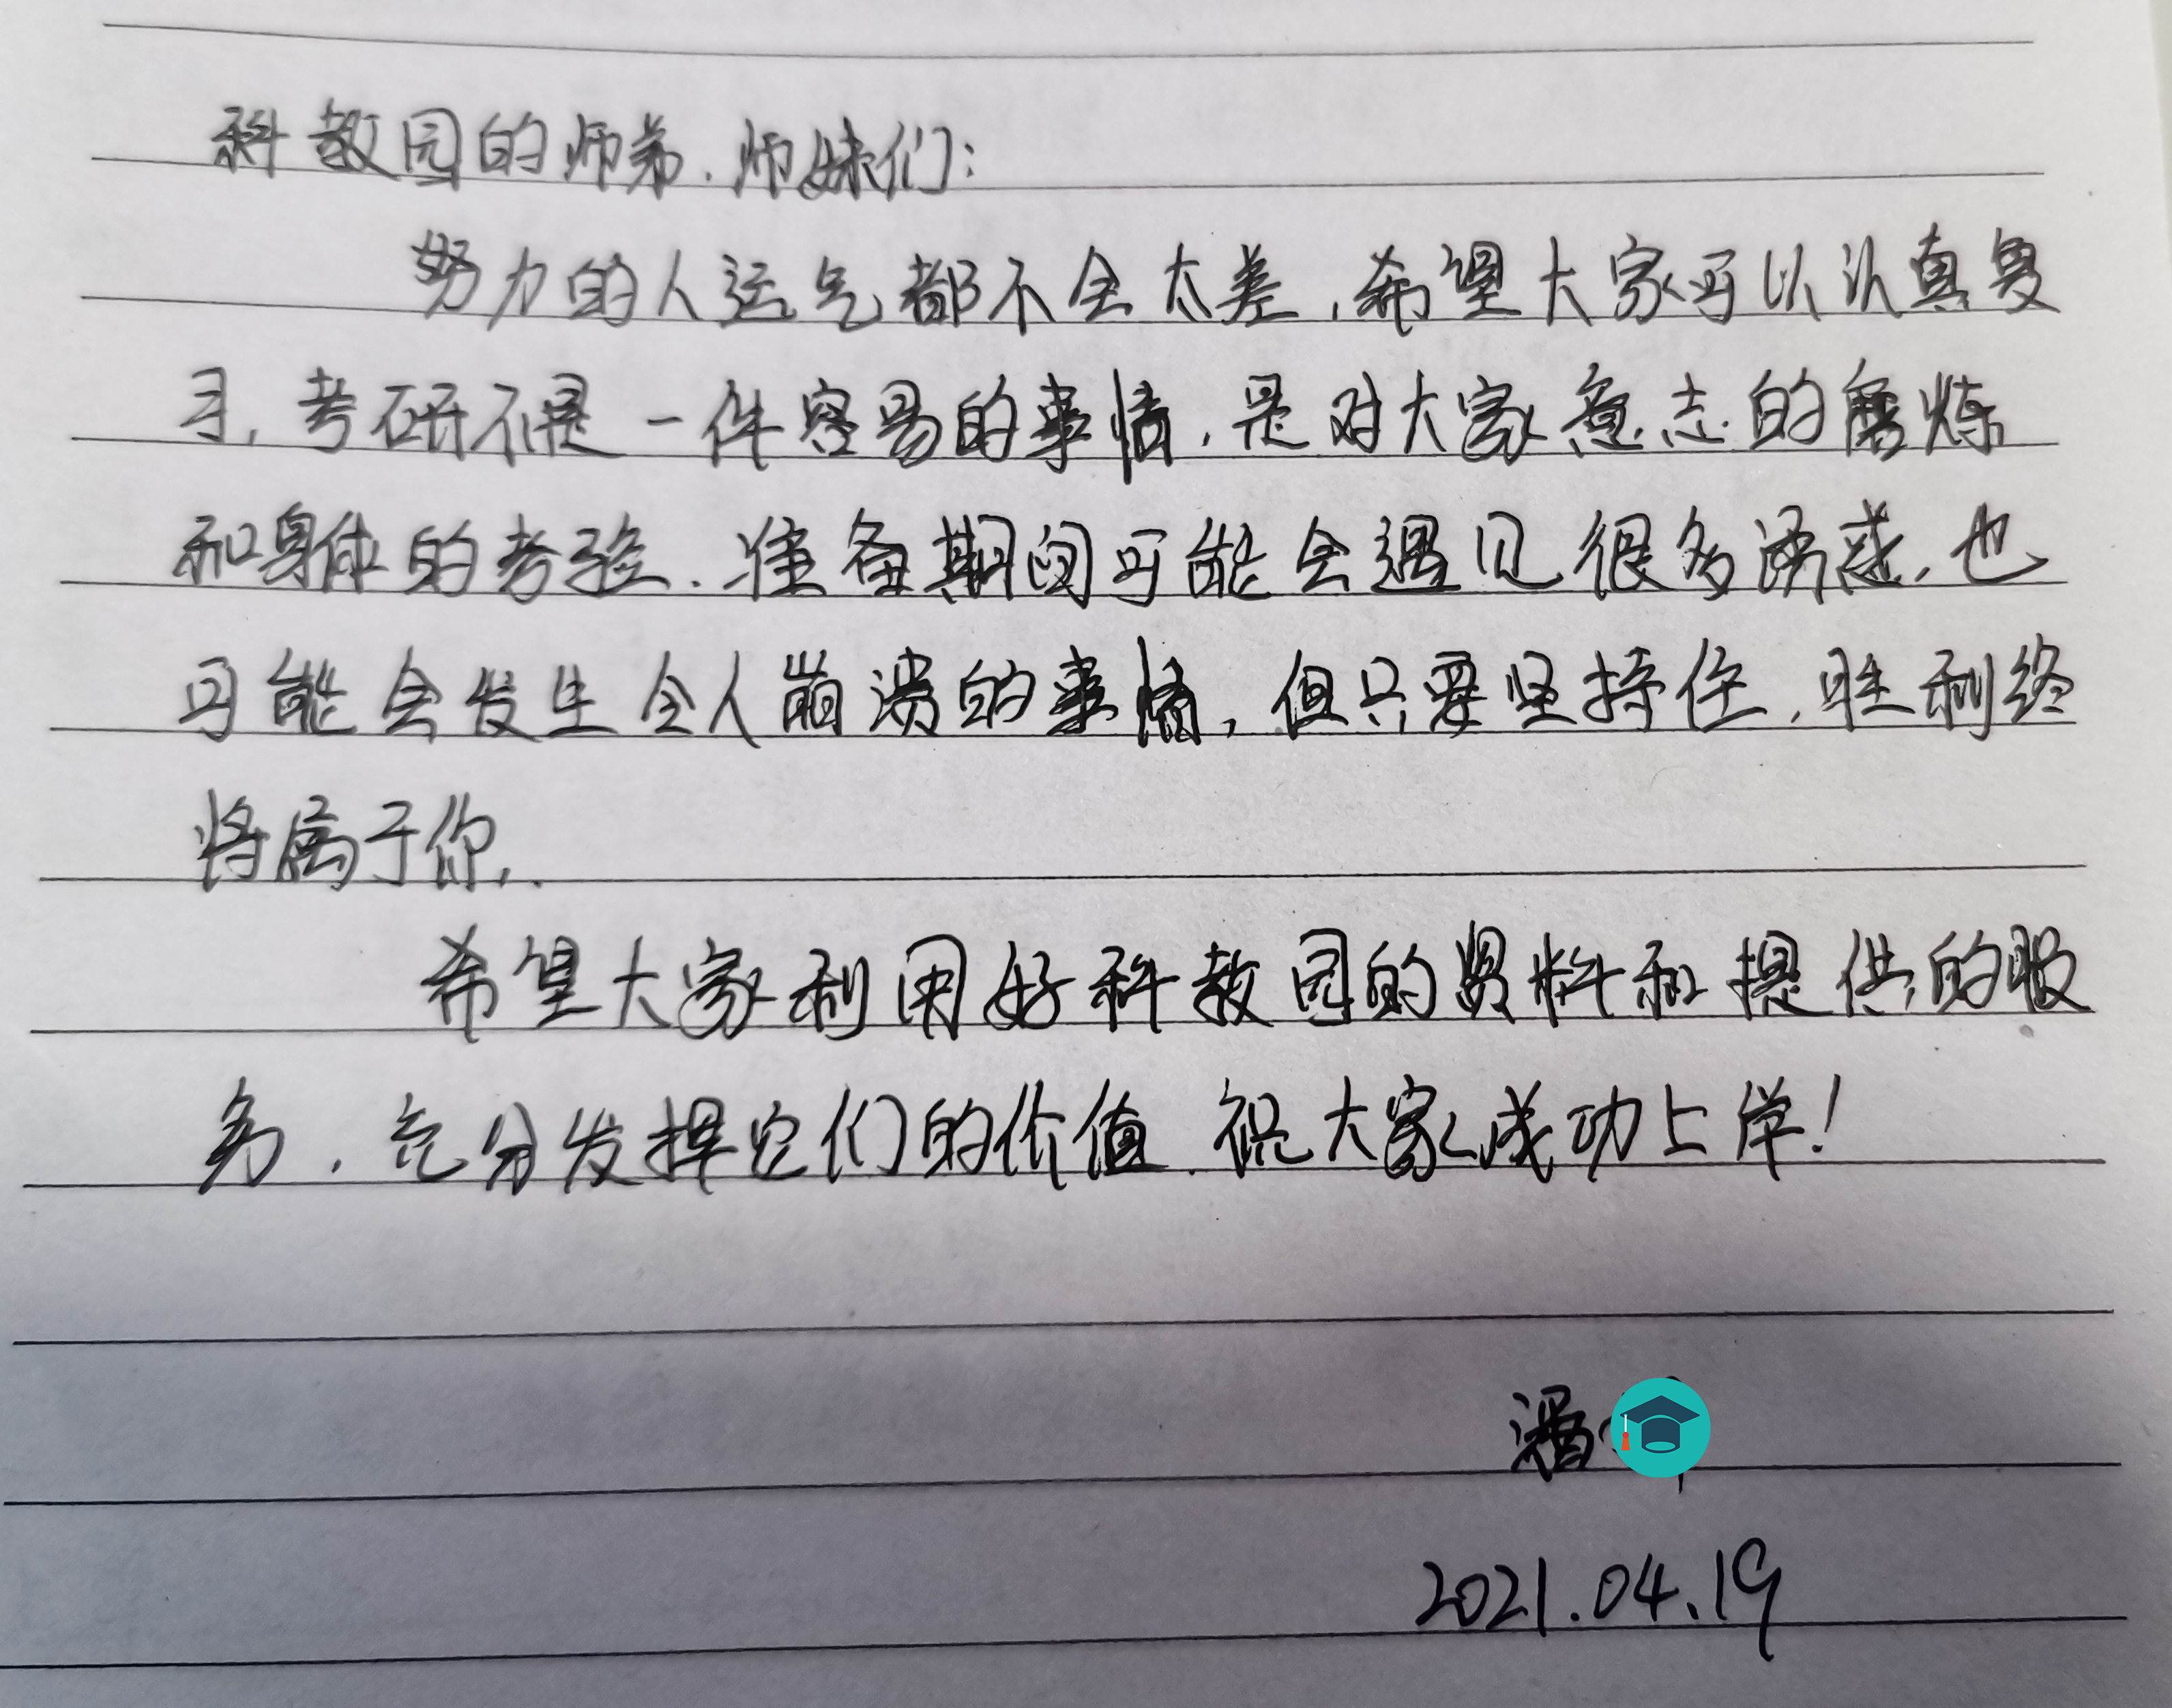 科教园的师弟、师妹们：
努力的人运气都不会太差，希望大家可以认真复
习，考研不是一件容易的事情，是对大家意志的磨炼
和身体的考验．准备期间可能会遇见很多诱惑，也
可能会发生令人崩溃的事情，但只要坚持住，胜利终
将属于你．
希望大家利用好科教园的资料和提供的服
务，充分发挥它们的价值．祝大家成功上岸！
潘
2021.04.19